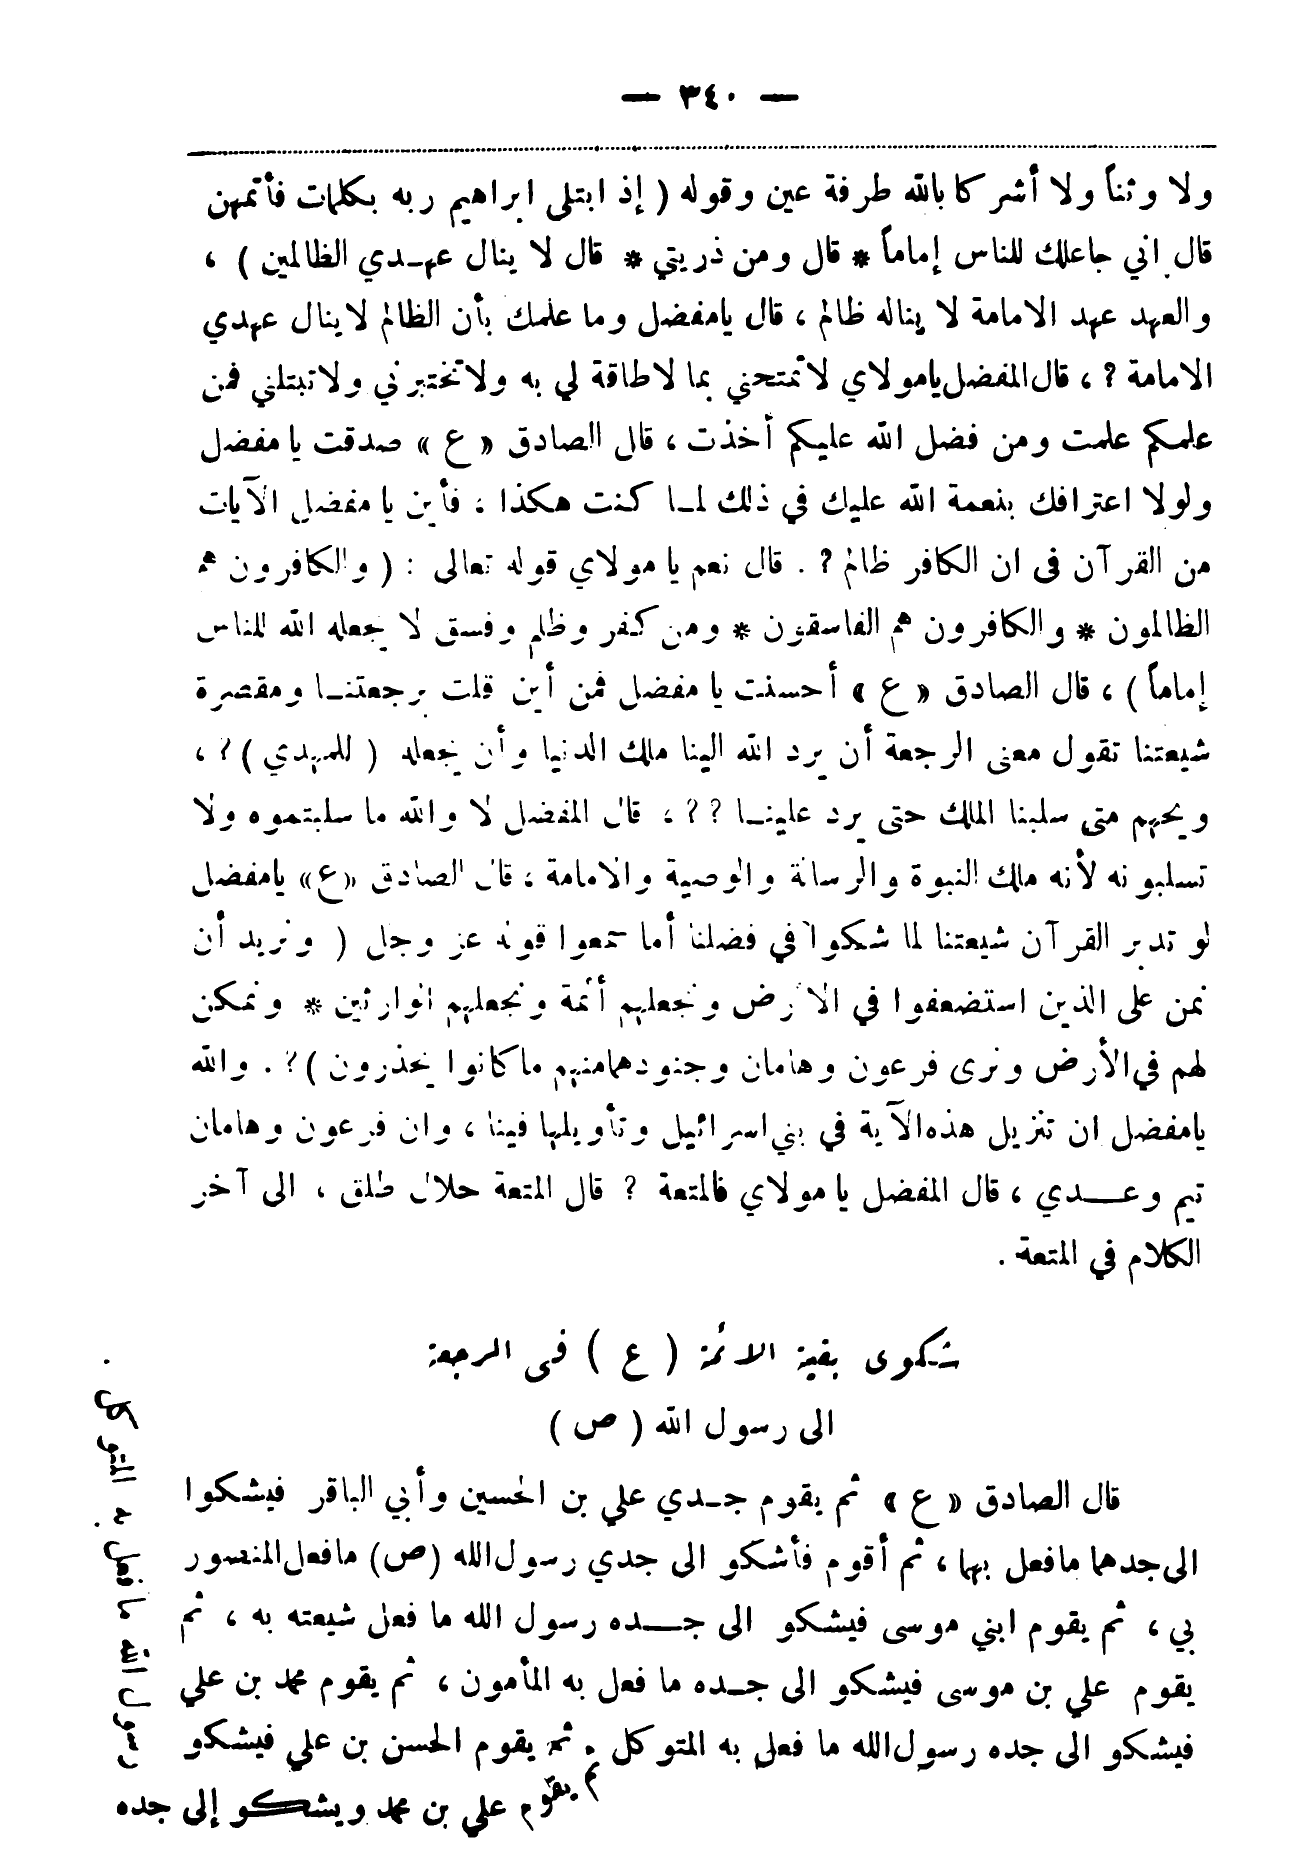 — ٣٤٠ —
ولا وثناً ولا أشركا بالله طرفة عين وقوله ( إذ ابتلى ابراهيم ربه بكلمات فأتمهن
قال اني جاعلك للناس إماماً * قال ومن ذريتي * قال لا ينال عهـدي الظالمين ) ،
والعهد عهد الامامة لا يناله ظالم ، قال يامفضل وما علمك بأن الظالم لاينال عهدي
الامامة ? ، قال المفضل يامولاي لاتمتحني بما لاطاقة لي به ولاتختبرني ولاتبتلني فمن
علمكم علمت ومن فضل الله عليكم أخذت ، قال الصادق « ع » صدقت يا مفضل
ولولا اعترافك بنعمة الله عليك في ذلك لمـا كنت هكذا ، فأين يا مفضل الآيات
من القرآن في ان الكافر ظالم ? . قال نعم يا مولاي قوله تعالى : ( والكافرون هم
الظالمون * والكافرون هم الفاسقون * ومن كفر وظلم وفسق لا يجعله الله للناس
إماماً ) ، قال الصادق « ع » أحسنت يا مفضل فمن أين قلت برجعتنـا ومقصرة
شيعتنا تقول معنى الرجعة أن يرد الله الينا ملك الدنيا وأن يجعله ( للمهدي ) ? ،
ويحهم متى سلبنا الملك حتى يرد علينـا ? ? ، قال المفضل لا والله ما سلبتموه ولا
تسلبونه لأنه ملك النبوة والرسالة والوصية والامامة ، قال الصادق «ع» يامفضل
لو تدبر القرآن شيعتنا لما شكوا في فضلنا أما سمعوا قوله عز وجل ( ونريد أن
نمن على الذين استضعفوا في الارض ونجعلهم أئمة ونجعلهم الوارثين * ونمكن
لهم في الأرض ونرى فرعون وهامان وجنودهمامنهم ماكانوا يحذرون ) ? . والله
يامفضل ان تنزيل هذه الآية في بني اسرائيل وتأويلها فينا ، وان فرعون وهامان
تيم وعـــدي ، قال المفضل يا مولاي فالمتعة ? قال المتعة حلال طلق ، الى آخر
الكلام في المتعة .
شكوى بقية الائمة ( ع ) في الرجعة
الى رسول الله ( ص )
قال الصادق « ع » ثم يقوم جـدي علي بن الحسين وأبي الباقر فيشكوا
الى جدهما مافعل بهما ، ثم أقوم فأشكو الى جدي رسول الله (ص) مافعل المنصور
بي ، ثم يقوم ابني موسى فيشكو الى جـــده رسول الله ما فعل شيعته به ، ثم
يقوم علي بن موسى فيشكو الى جـده ما فعل به المأمون ، ثم يقوم محمد بن علي
فيشكو الى جده رسول الله ما فعل به المتوكل . ثم يقوم الحسن بن علي فيشكو
ثم يقوم علي بن محمد ويشكو إلى جده
رسول الله مافعل به المتوكل .